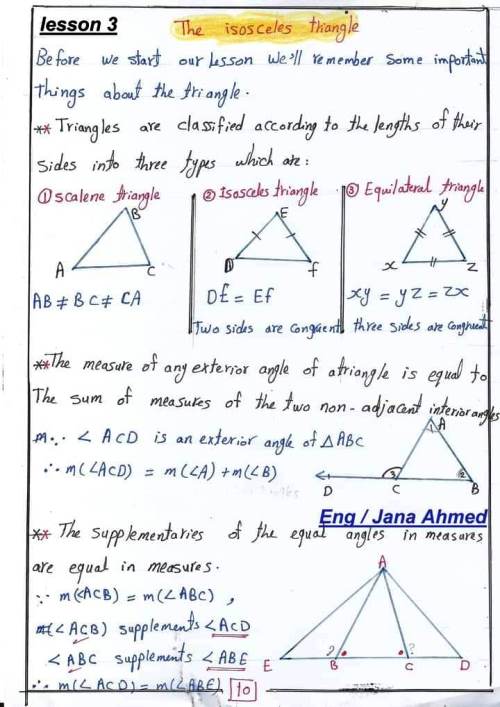 lesson 3
The isosceles triangle
Before we start our Lesson we'll remember some important
Things about the triangle.
** Triangles are classified according to the lengths of their
sides into three types which are:
① Scalene triangle
B
A
C
AB ≠ BC ≠ CA
② Isosceles triangle
E
D
f
DE = Ef
Two sides are congruent
③ Equilateral triangle
y
x
z
xy = yz = zx
three sides are congruent
** The measure of any exterior angle of atriangle is equal to
The sum of measures of the two non-adjacent interior angles
∵ ∠ ACD is an exterior angle of △ ABC
∴ m(∠ACD) = m(∠A) + m(∠B)
A
1
3
2
D
C
B
Eng / Jana Ahmed
** The supplementaries of the equal angles in measures
are equal in measures.
∵ m(∠ACB) = m(∠ABC) ,
∠ACB) supplements ∠ACD
∠ABC supplements ∠ABE
∴ m(∠ACD) = m(∠ABE)
A
?
?
E
B
C
D
10